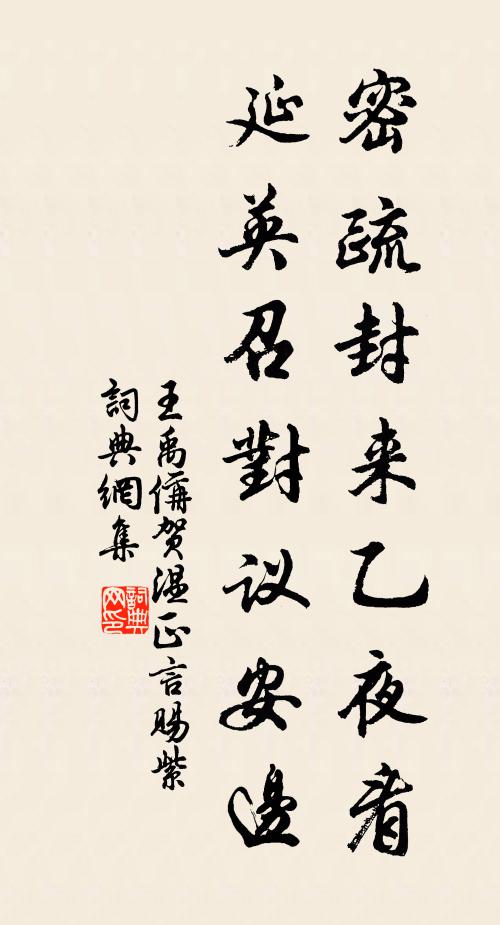 密疏封来乙夜看
延英召對议安邊
王禹偁贺温正言賜紫
詞典網集
詞典网印